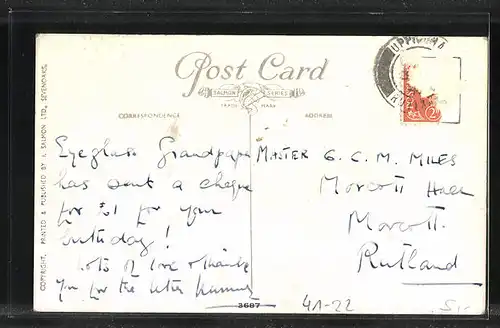 Post Card
SALMON SERIES
TRADE MARK
CORRESPONDENCE
ADDRESS
COPYRIGHT. PRINTED & PUBLISHED BY J. SALMON LTD., SEVENOAKS.
Eyeglass Grandpapa
has sent a cheque
for £1 for your
birthday!
Lots of love & thank
you for the letter
MASTER G. C. M. MILES
Morcott Hall
Morcott.
Rutland
3687
41-22
5,-